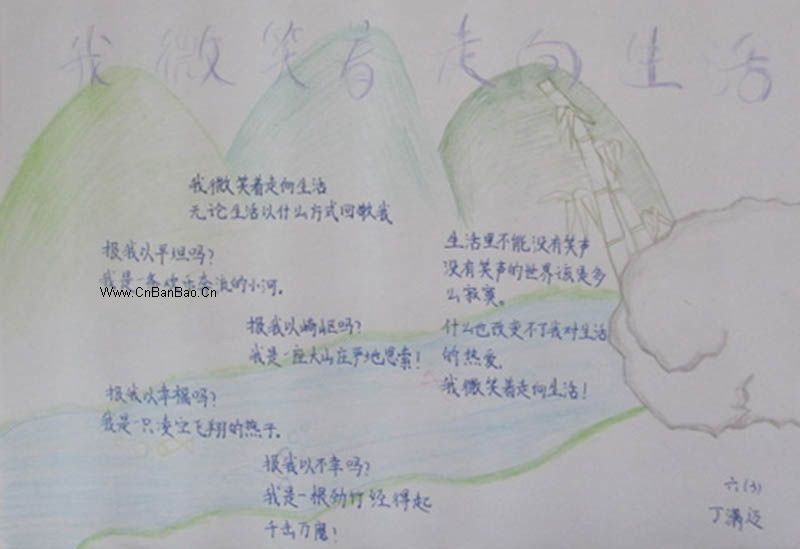 我微笑着走向生活
我微笑着走向生活
无论生活以什么方式回敬我
报我以平坦吗？
我是一条欢乐奔流的小河。
www.CnBanBao.Cn
报我以崎岖吗？
我是一座大山庄严地思索！
报我以幸福吗？
我是一只凌空飞翔的燕子。
报我以不幸吗？
我是一根劲竹经得起
千击万磨！
生活里不能没有笑声
没有笑声的世界该是多
么寂寞。
什么也改变不了我对生活
的热爱，
我微笑着走向生活！
六(3)
丁满